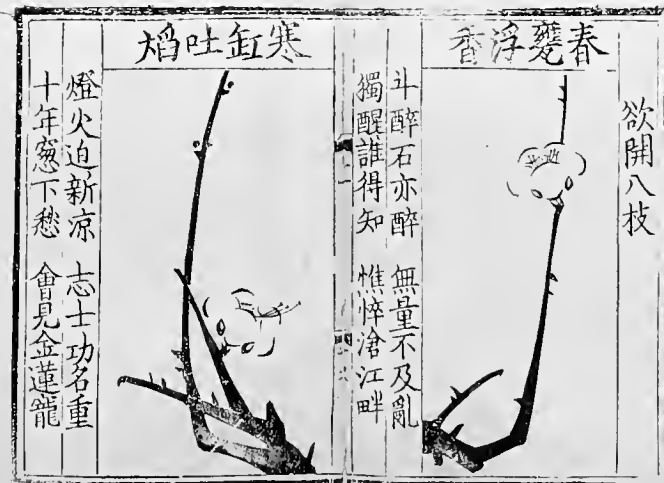 欲開八枝
春甕浮香
斗醉石亦醉 無量不及亂
獨醒誰得知 憔悴滄江畔
寒缸吐熖
燈火迫新凉 志士功名重
十年窻下愁 會見金蓮寵